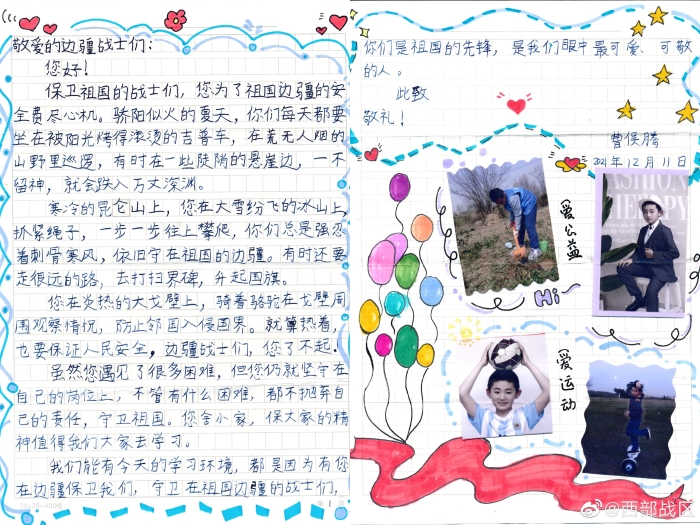 敬爱的边疆战士们：
您好！
保卫祖国的战士们，您为了祖国边疆的安
全费尽心机。骄阳似火的夏天，你们每天都要
坐在被阳光烤得滚烫的吉普车，在荒无人烟的
山野里巡逻，有时在一些陡峭的悬崖边，一不
留神，就会跌入万丈深渊。
寒冷的昆仑山上，您在大雪纷飞的冰山上，
抓紧绳子，一步一步往上攀爬，你们总是强忍
着刺骨寒风，依旧守在祖国的边疆。有时还要
走很远的路，去打扫界碑，升起国旗。
您在炎热的大戈壁上，骑着骆驼在戈壁周
围观察情况，防止邻国入侵国界。就算热着，
也要保证人民安全，边疆战士们，您了不起！
虽然您遇见了很多困难，但您仍就坚守在
自己的岗位上，不管有什么困难，都不抛弃自
己的责任，守卫祖国。您舍小家，保大家的精
神值得我们大家去学习。
我们能有今天的学习环境，都是因为有您
在边疆保卫我们，守卫在祖国边疆的战士们，
你们是祖国的先锋，是我们眼中最可爱、可敬
的人。
此致
敬礼！
曹侯腾
2021年12月11日
爱公益
Hi~
爱运动
@西部战区